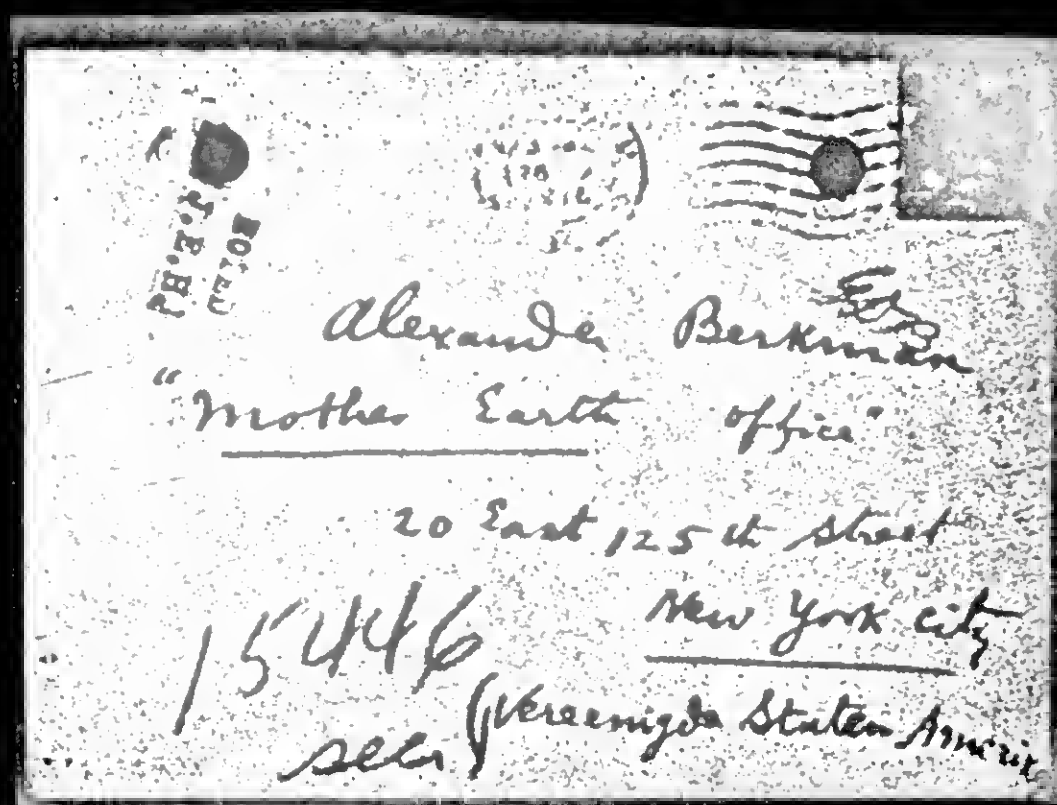 Alexander Berkman
"Mother Earth office"
20 East 125th Street
New York City
15446
(Vereenigde Staten Amerik